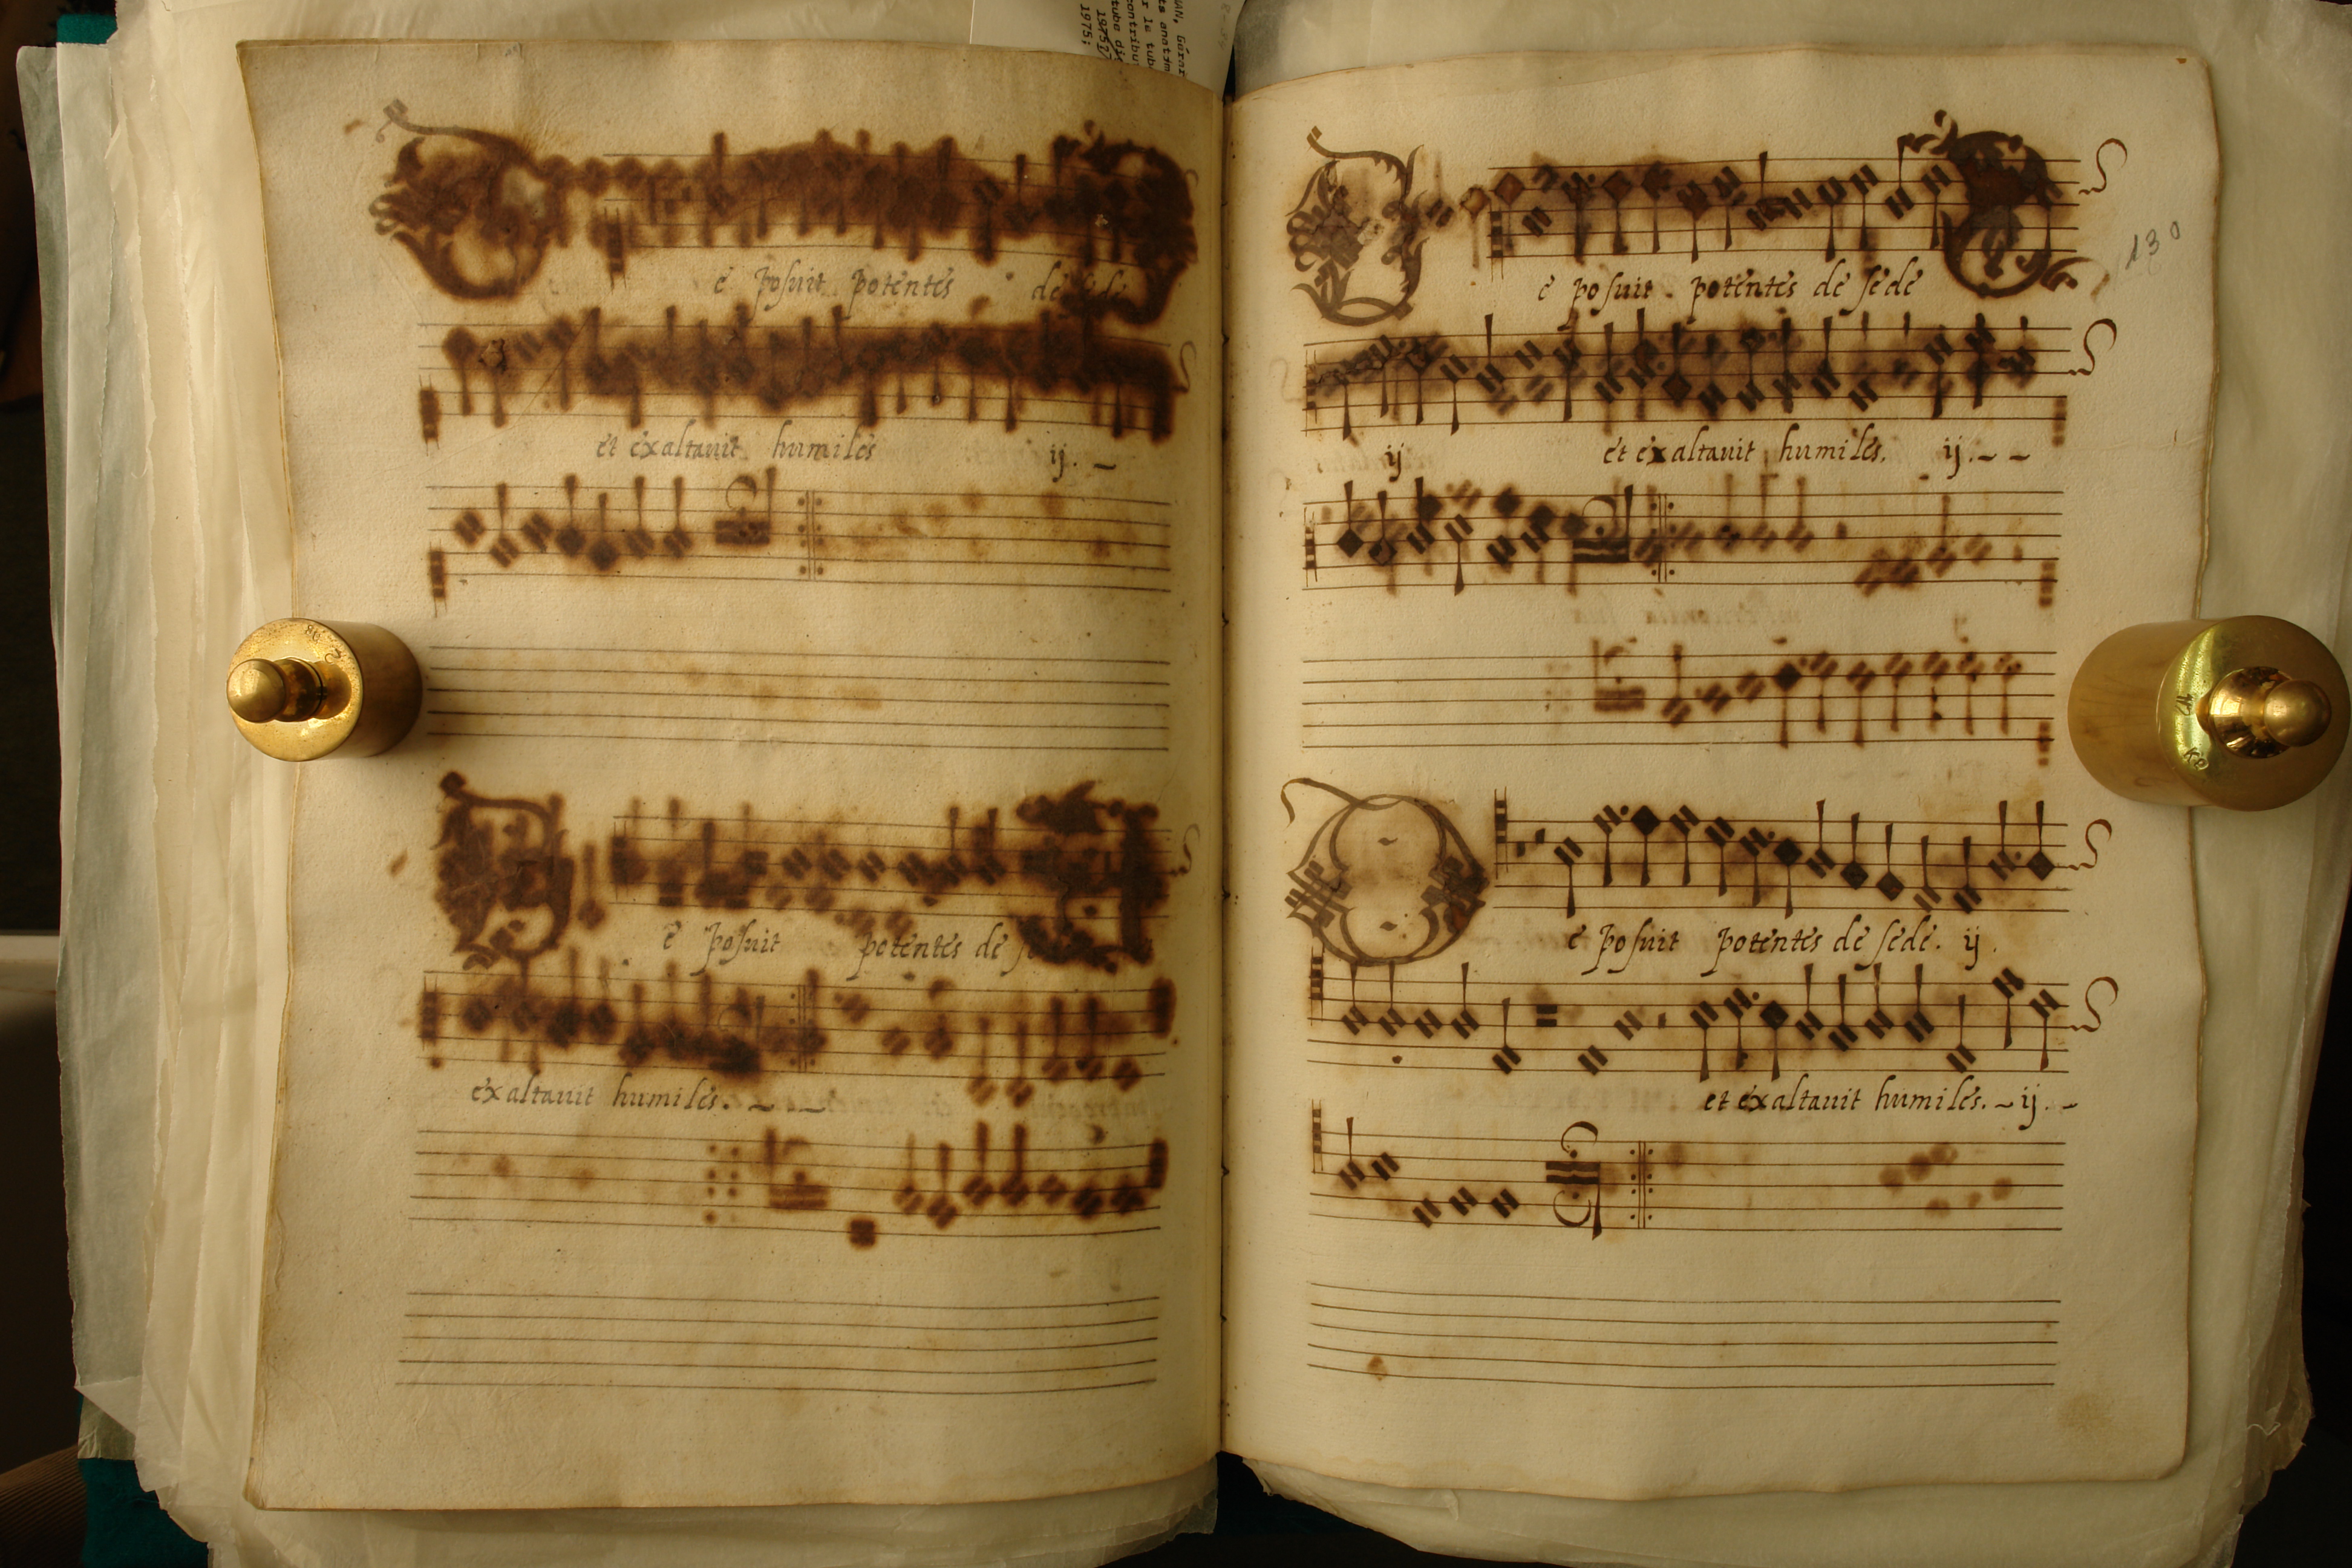 e posuit potentes de sede
et exaltavit humiles ij.
e posuit potentes de se
exaltavit humiles.
130
e posuit potentes de sede
ij et exaltavit humiles. ij.
e posuit potentes de sede. ij.
et exaltavit humiles. ij.